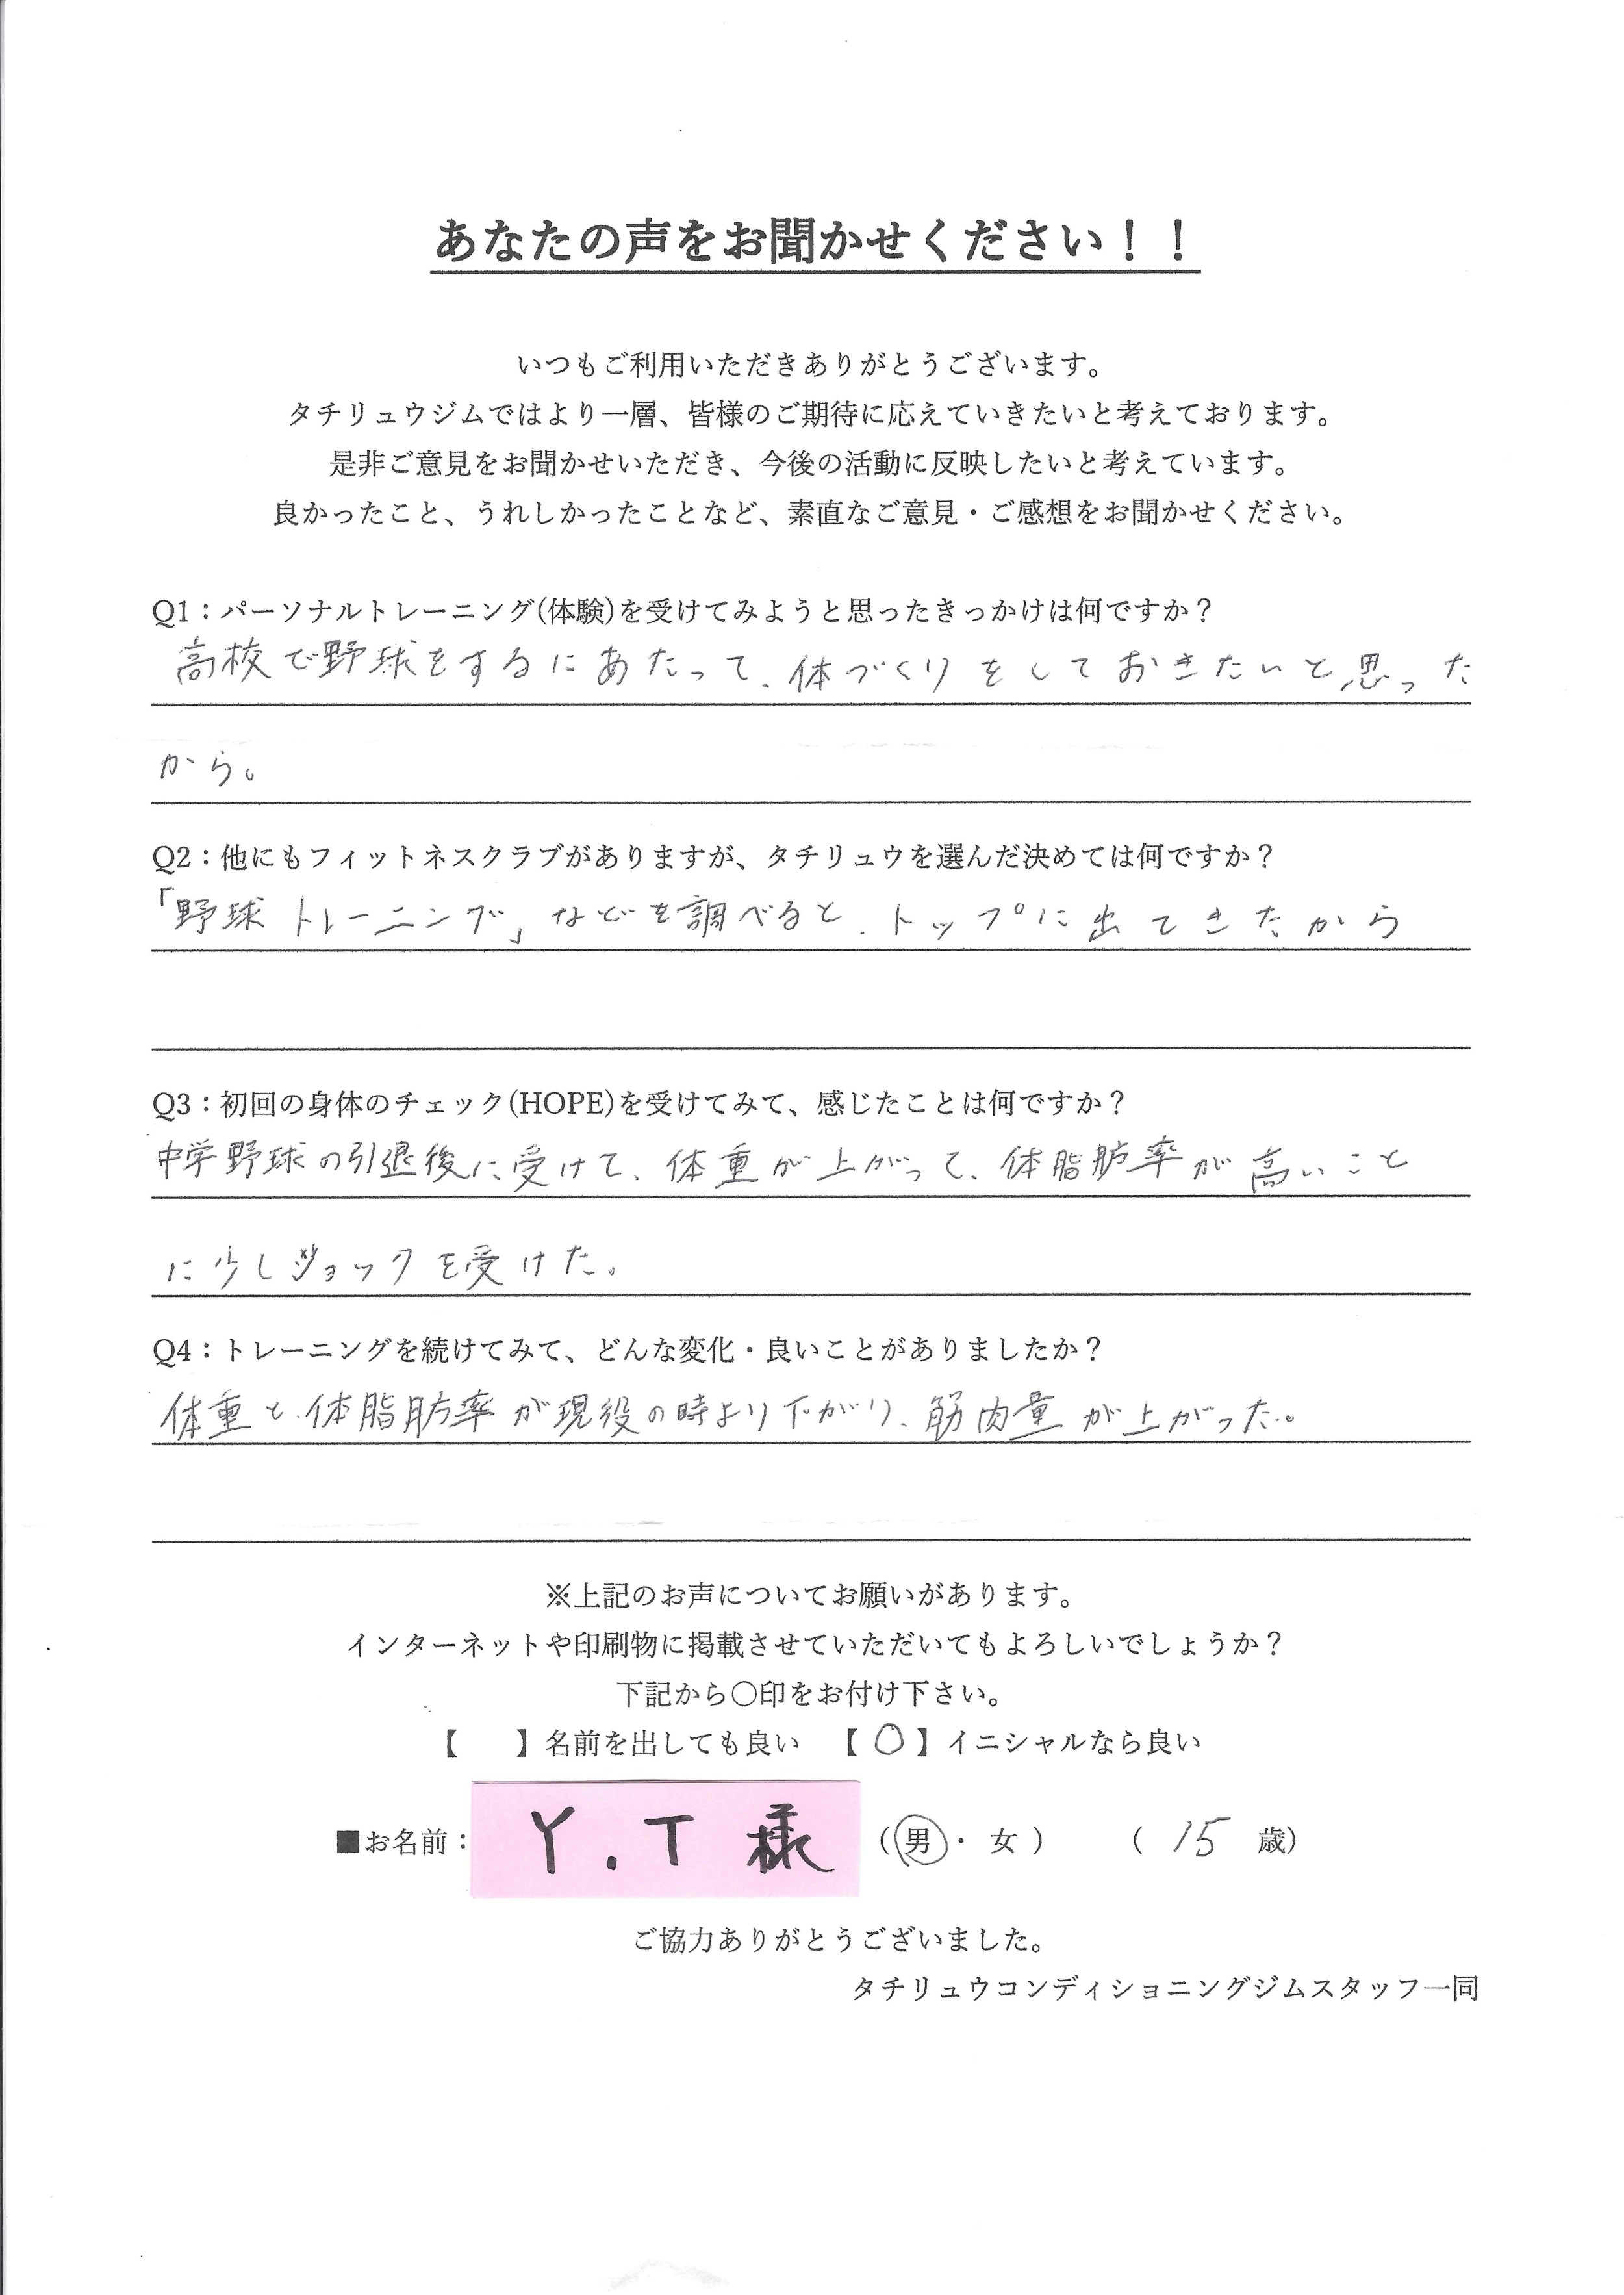 あなたの声をお聞かせください！！
いつもご利用いただきありがとうございます。
タチリュウジムではより一層、皆様のご期待に応えていきたいと考えております。
是非ご意見をお聞かせいただき、今後の活動に反映したいと考えています。
良かったこと、うれしかったことなど、素直なご意見・ご感想をお聞かせください。
Q1：パーソナルトレーニング(体験)を受けてみようと思ったきっかけは何ですか？
高校で野球をするにあたって、体づくりをしておきたいと思った
から。
Q2：他にもフィットネスクラブがありますが、タチリュウを選んだ決めては何ですか？
「野球 トレーニング」などを調べると、トップに出てきたから
Q3：初回の身体のチェック(HOPE)を受けてみて、感じたことは何ですか？
中学野球の引退後に受けて、体重が上がって、体脂肪率が高いこと
に少しショックを受けた。
Q4：トレーニングを続けてみて、どんな変化・良いことがありましたか？
体重と、体脂肪率が現役の時より下がり、筋肉量が上がった。
※上記のお声についてお願いがあります。
インターネットや印刷物に掲載させていただいてもよろしいでしょうか？
下記から〇印をお付け下さい。
【　　】名前を出しても良い　【 〇 】イニシャルなら良い
■お名前： Y.T 様 （男・ 女 ）　（ 15 歳）
ご協力ありがとうございました。
タチリュウコンディショニングジムスタッフ一同